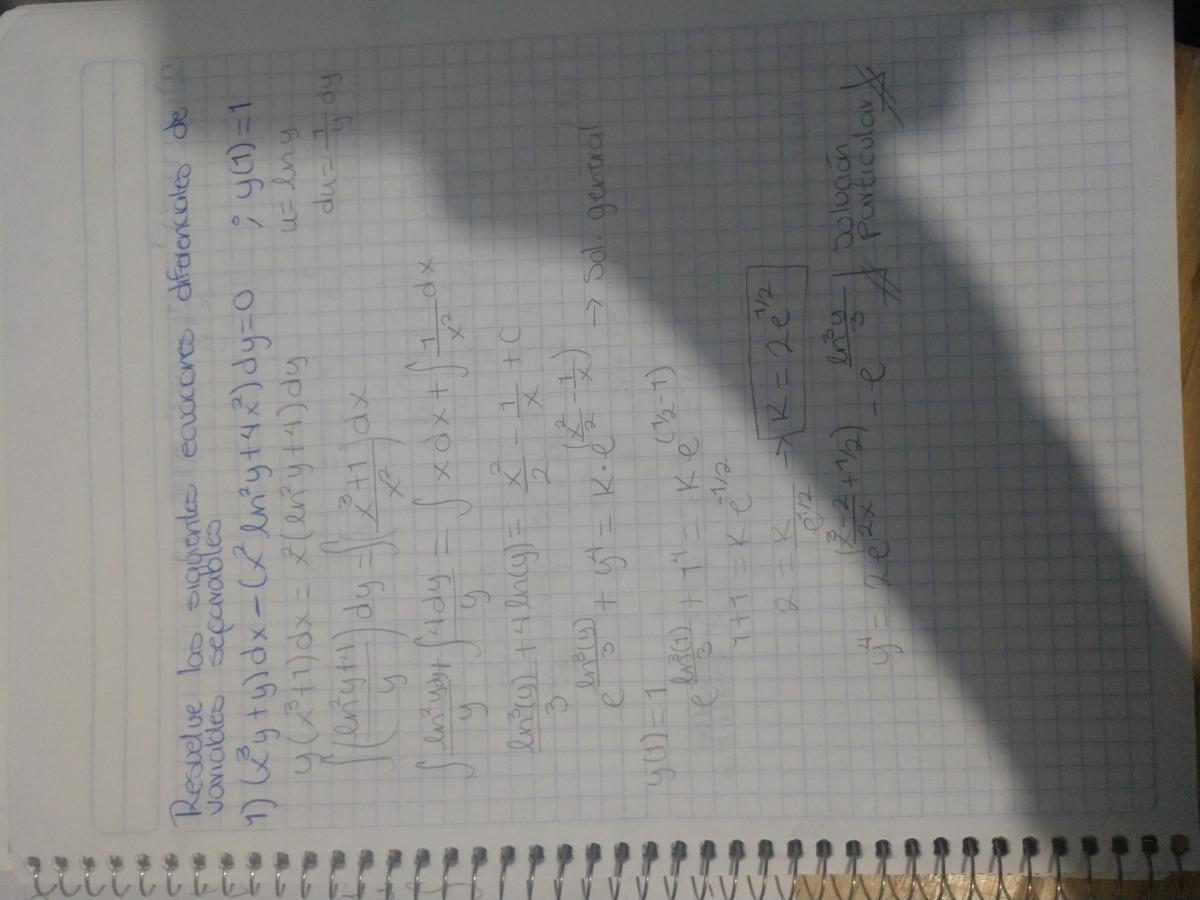 Resuelve las siguientes ecuaciones diferenciales de
variables separables
1) (x³y+y)dx-(x² ln²y+4x²)dy=0 ; y(1)=1
y(x³+1)dx = x²(ln²y+4)dy u=ln y
∫(ln²y+4 / y)dy = ∫(x³+1 / x²)dx du= 1/y dy
∫ ln²y dy / y + ∫ 4dy / y = ∫ x dx + ∫ 1/x² dx
ln³(y)/3 + 4 ln(y) = x²/2 - 1/x + C
e^(ln³(y)/3) + y⁴ = K·e^(x²/2 - 1/x) → Sol. general
y(1)=1
e^(ln³(1)/3) + 1⁴ = K e^(1/2-1)
1+1 = K e^(-1/2)
2 = K / e^(1/2) → K = 2e^(1/2)
y⁴ = 2e^(x³-2 / 2x + 1/2) - e^(ln³y / 3) Solución
Particular